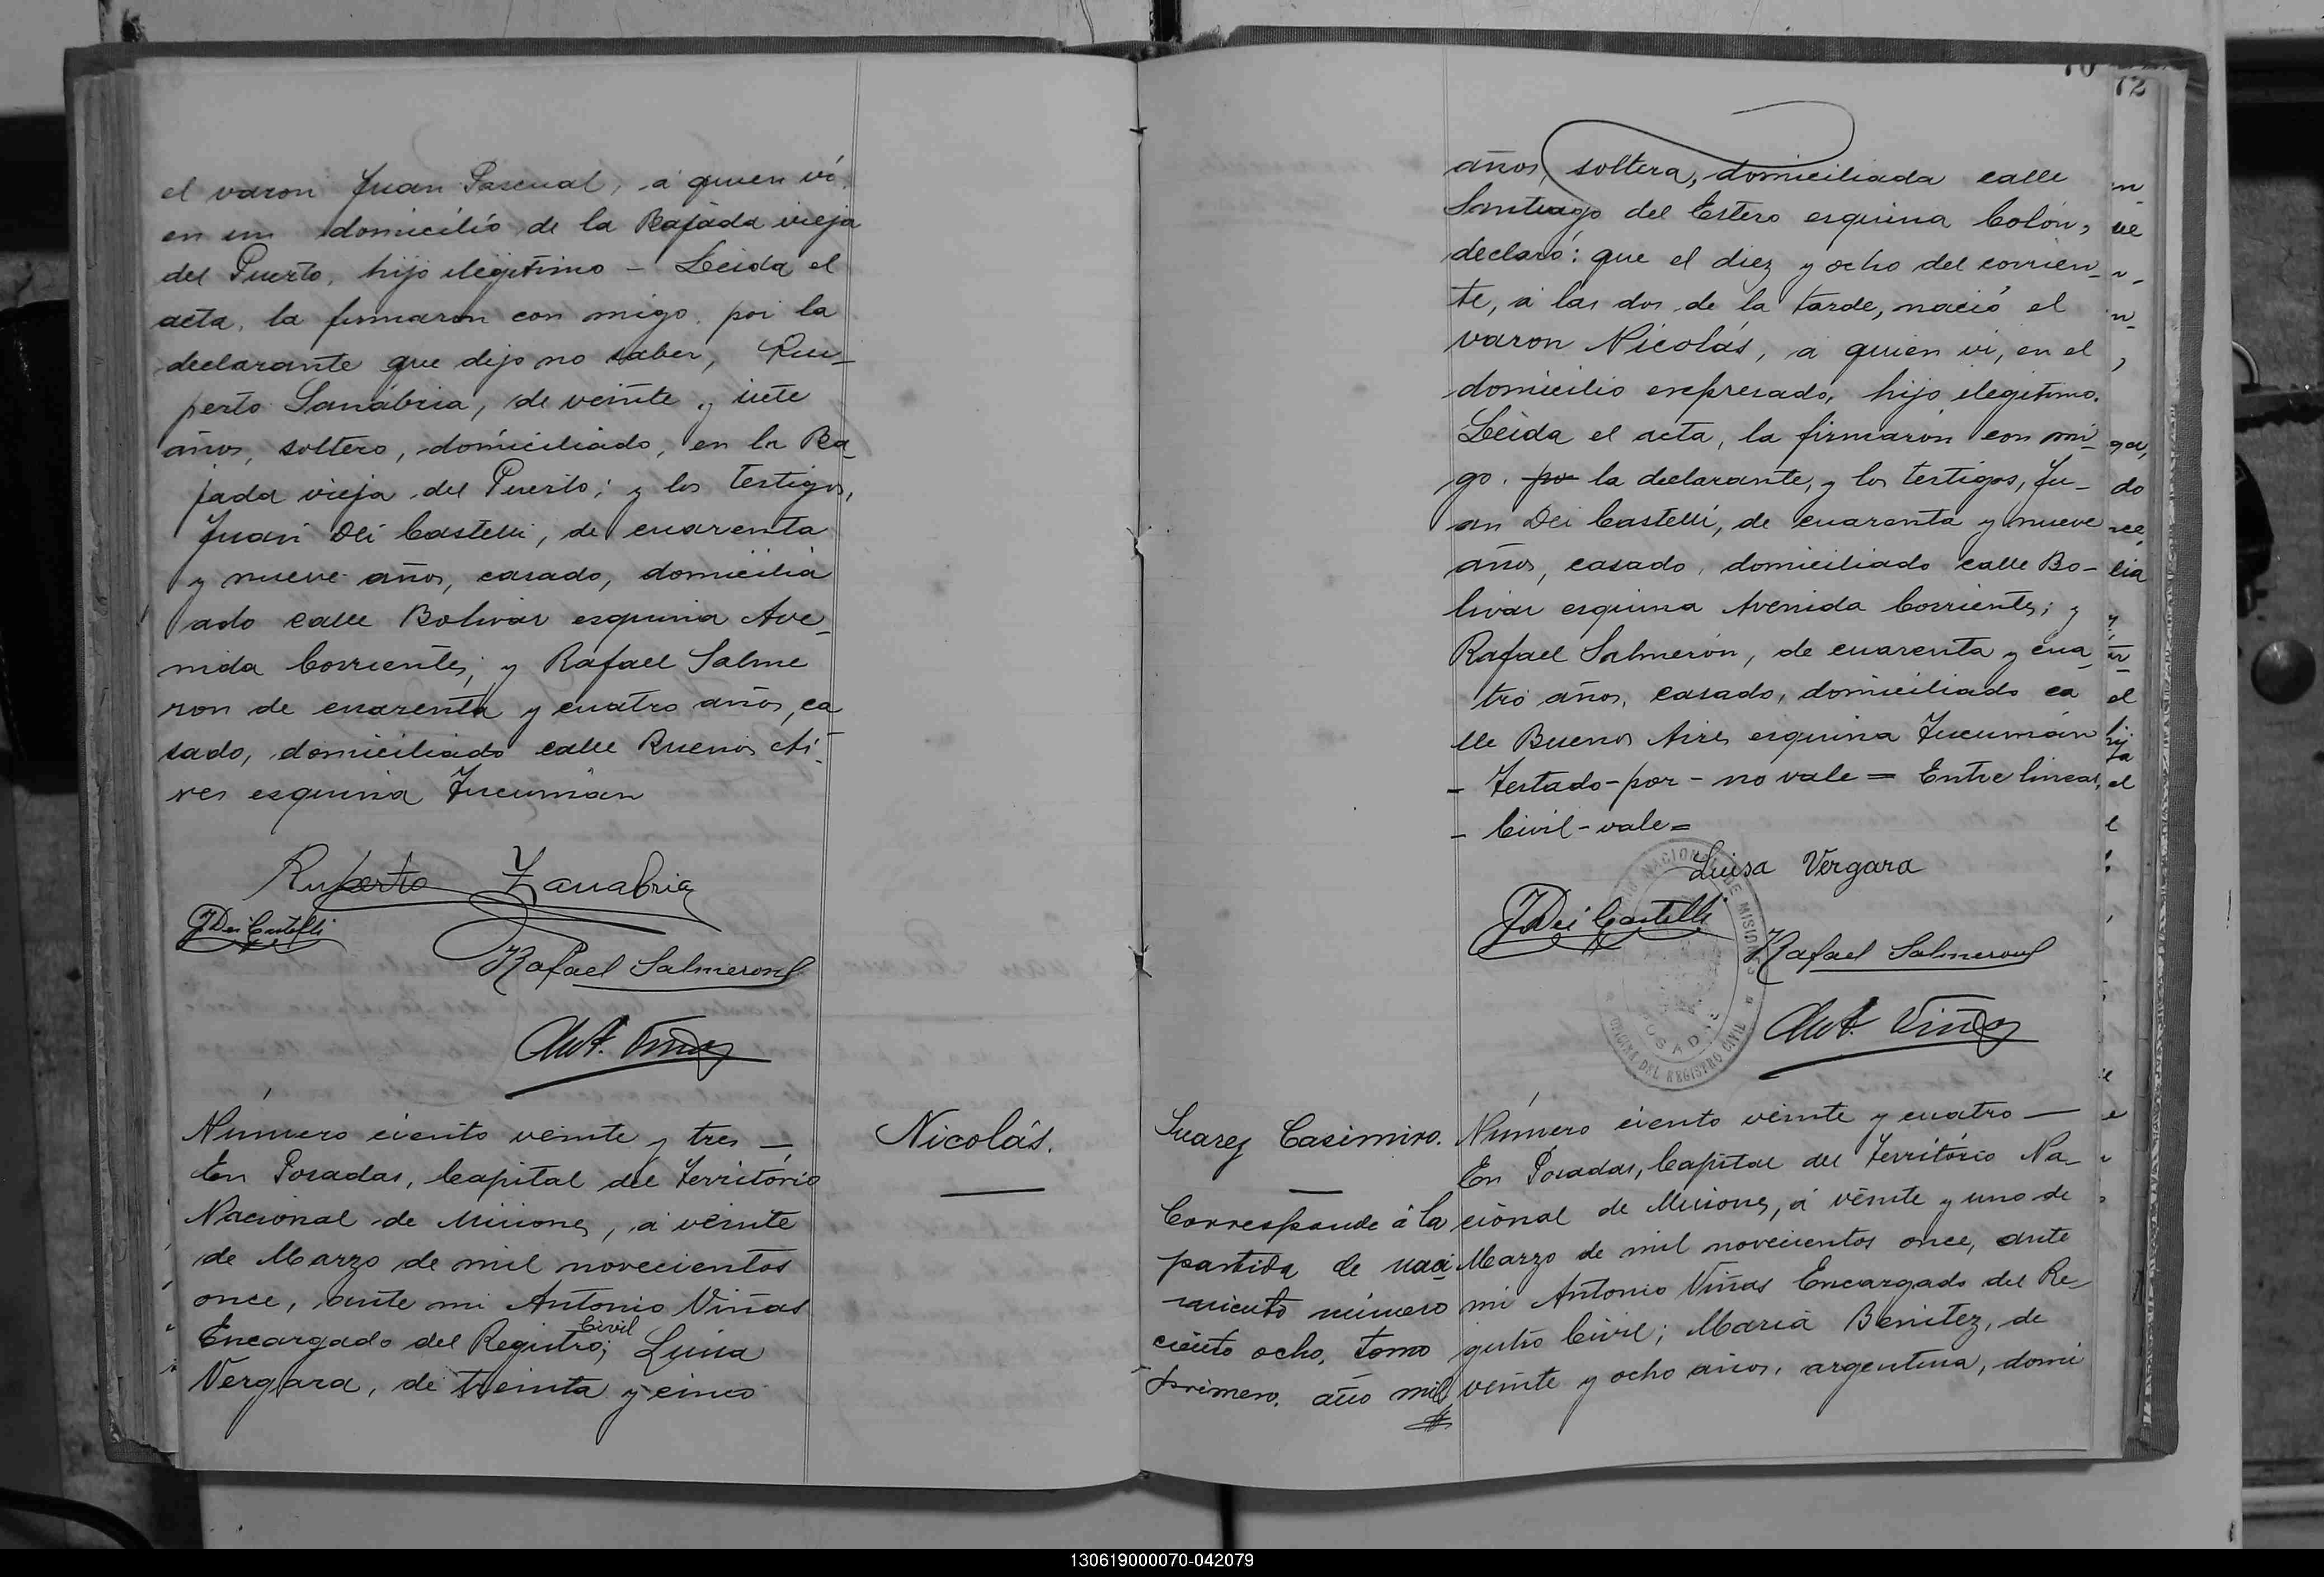 el varon Juan Pascual, á quien ví,
en su domicilio de la Bajada vieja
del Puerto, hijo ilegitimo - Leida el
acta, la firmaron con migo, por la
declarante que dijo no saber, Ru-
perto Sanábria, de veinte y siete
años, soltero, domiciliado, en la Ba
jada vieja del Puerto; y los testigos,
Juan Dei Castelli, de cuarenta
y nueve años, casado, domicilia
ado calle Bolivar esquina Ave-
nida Corrientes; y Rafael Salme
ron de cuarenta y cuatro años, ca
sado, domiciliado calle Buenos Ai-
res esquina Tucumán
Ruperto Zanabria
J Dei Castelli
Rafael Salmeron
Ant. Viñas
Número ciento veinte y tres —
En Posadas, Capital del Territorio
Nacional de Misiones, á veinte
de Marzo de mil novecientos
once, ante mi Antonio Viñas
Encargado del Registro Civil; Luisa
Vergara, de treinta y cinco
Nicolás.
70
72
años, soltera, domiciliada calle
Santiago del Estero esquina Colón,
declaró: que el diez y ocho del corrien-
te, á las dos de la tarde, nació el
varon Nicolás, á quien ví, en el
domicilio expresado, hijo ilegitimo.
Leida el acta, la firmaron con mi-
go, por la declarante, y los testigos, Ju-
an Dei Castelli, de cuarenta y nueve
años, casado, domiciliado calle Bo-
livar esquina Avenida Corrientes; y
Rafael Salmerón, de cuarenta y cua-
tro años, casado, domiciliado ca
lle Buenos Aires esquina Tucumán
- Testado - por - no vale = Entre lineas,
- Civil - vale =
Luisa Vergara
J Dei Castelli
Rafael Salmeron
Ant. Viñas
NACIONAL DE MISIONES
POSADAS
OFICINA DEL REGISTRO CIVIL
Suarez Casimiro.
Corresponde á la
partida de naci
miento número
ciento ocho, tomo
primero, año mil
Número ciento veinte y cuatro —
En Posadas, Capital del Territorio Na-
cional de Misiones, á veinte y uno de
Marzo de mil novecientos once, ante
mi Antonio Viñas Encargado del Re
gistro Civil; Maria Benitez, de
veinte y ocho años, argentina, domi
130619000070-042079